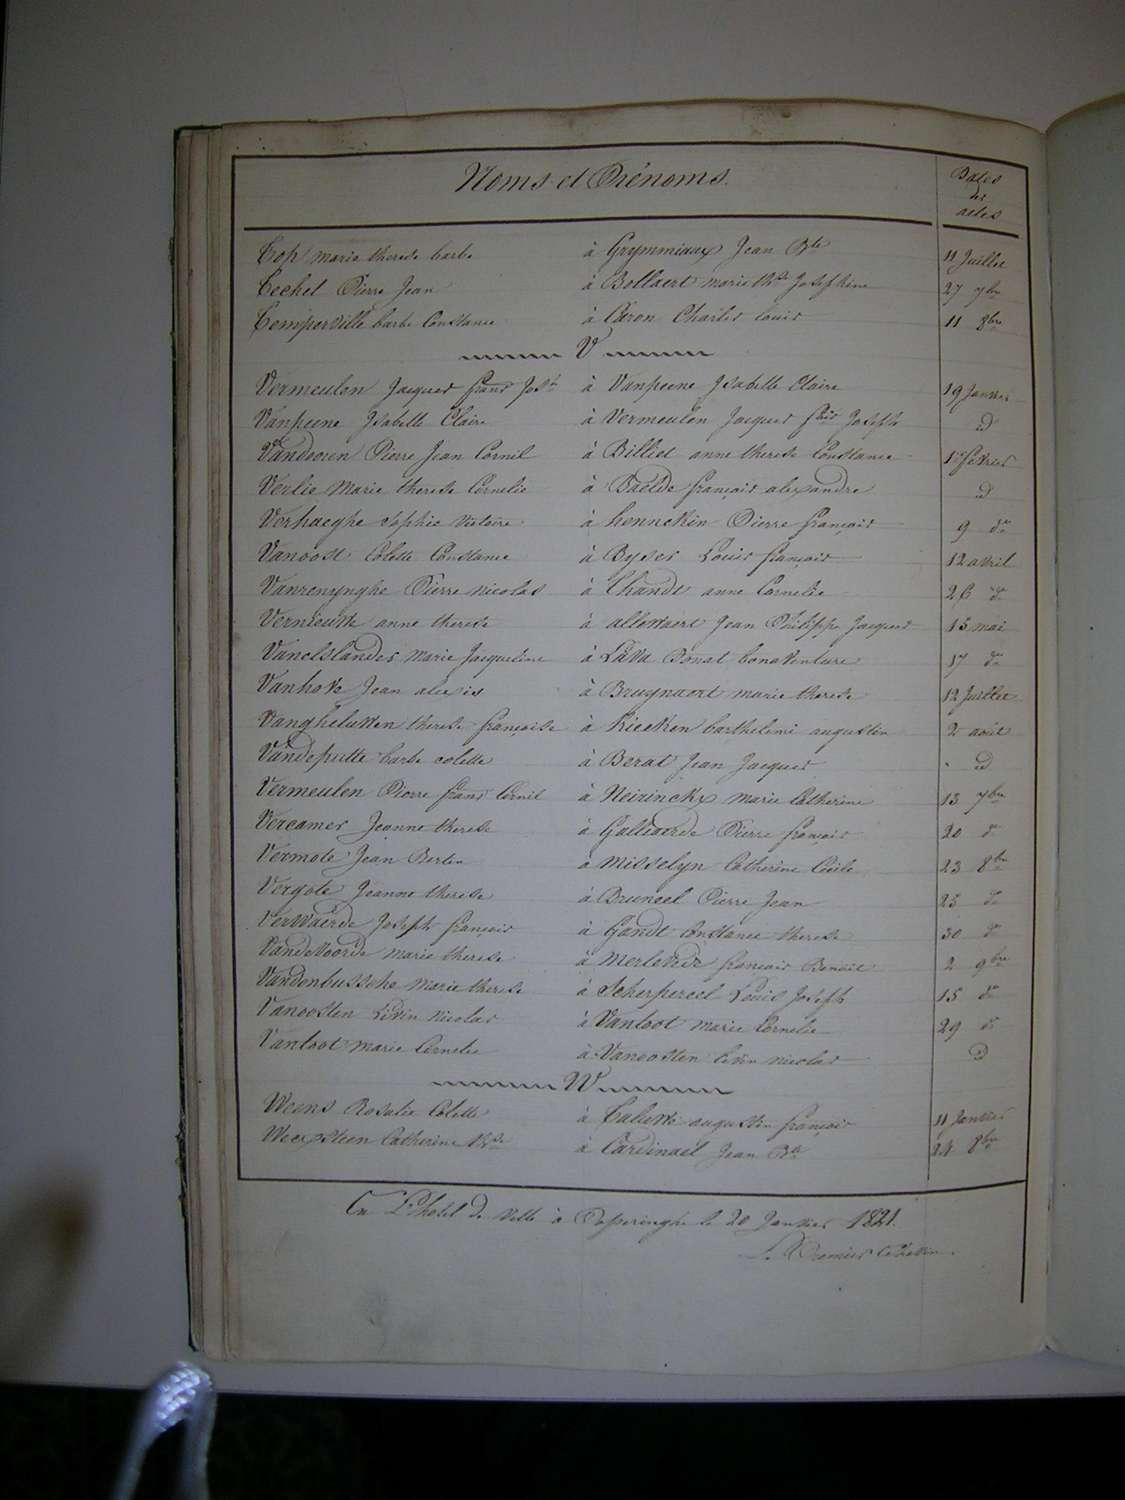 Noms et Prénoms.
Dates des actes
Top marie therese barbe à Grymmiaux Jean Bte 11 Juillet
Techel Pierre Jean à Bollaert marie the Josephine 27 7bre
Temperville barbe Constance à Caron Charles louis 11 8bre
V
Vermeulen Jacques frans Josh à Vanpeene Isabelle Claire 19 Janvier
Vanpeene Isabelle Claire à Vermeulen Jacques frois Joseph id
Pierre Jean Cornil à Billiet anne therese Constance fevrier
Verlie Marie therese Cornelie à Baelde françois alexandre id
Verhaeghe Sophie Victoire à hennekin Pierre françois 9 do
Vanoost Colette Constance à Byser Louis françois 12 avril
Vanrenynghe Pierre nicolas à Thandt anne Cornelie 26 do
Vernieuw anne therese à allewaert Jean Philippe Jacques 13 mai
Vanelslander Marie Jacqueline à Lava Donat bonaventure 17 do
Vanhove Jean alexis à Bruynaert marie therese 12 Juillet
Vangheluwen therese françoise à Kiecken barthelemi augustin 2 août
Vandeputte barbe colette à Berat Jean Jacques id
Vermeulen Pierre frans Cornil à Neirinckx marie Catherine 13 7bre
Vercamer Jeanne therese à Galliaerde Pierre françois 20 do
Vermote Jean Bertin à Misselyn Catherine Cécile 23 8bre
Vergote Jeanne therese à Bruneel Pierre Jean 23 do
Verwaerde Joseph françois à Gandt Constance therese 30 do
VandeVoorde marie therese à Merlevede françois Benoit 2 9bre
Vandenbussche Marie therese à Scherpereel Louis Joseph 15 do
Vanoosten Livin nicolas à Vanloot marie Cornelie 29 do
Vanloot marie Cornelie à Vanoosten livin nicolas id
W
Weens Rosalie Colette à Taluwé augustin françois 11 Janvier
Weexsteen Catherine à Cardinael Jean Bte 24 8bre
En L'hotel de ville à Poperinghe le 20 Janvier 1821.
Le Premier Echevin